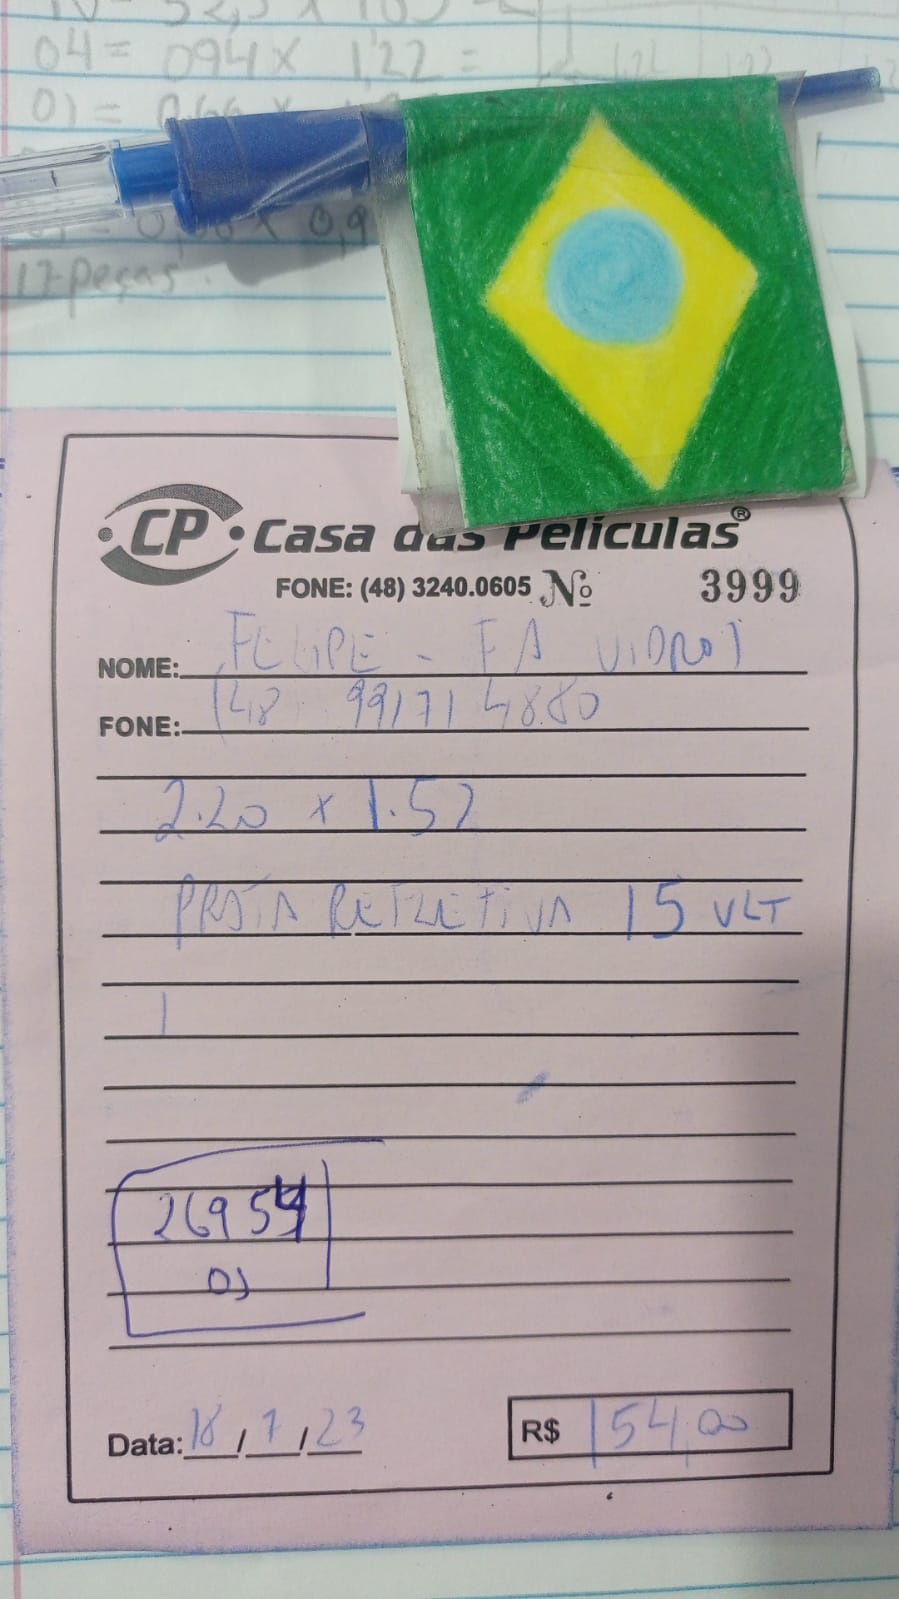 04= 094 x 1,22 =
01=
0,9
17 peças.
CP Casa das Películas®
FONE: (48) 3240.0605 Nº 3999
NOME: FELIPE - FA VIDROS
FONE: (48 991714880
2.20 x 1.52
PRATA REFLETIVA 15 VLT
26954
01
Data: 18/7/23 R$ 154,00